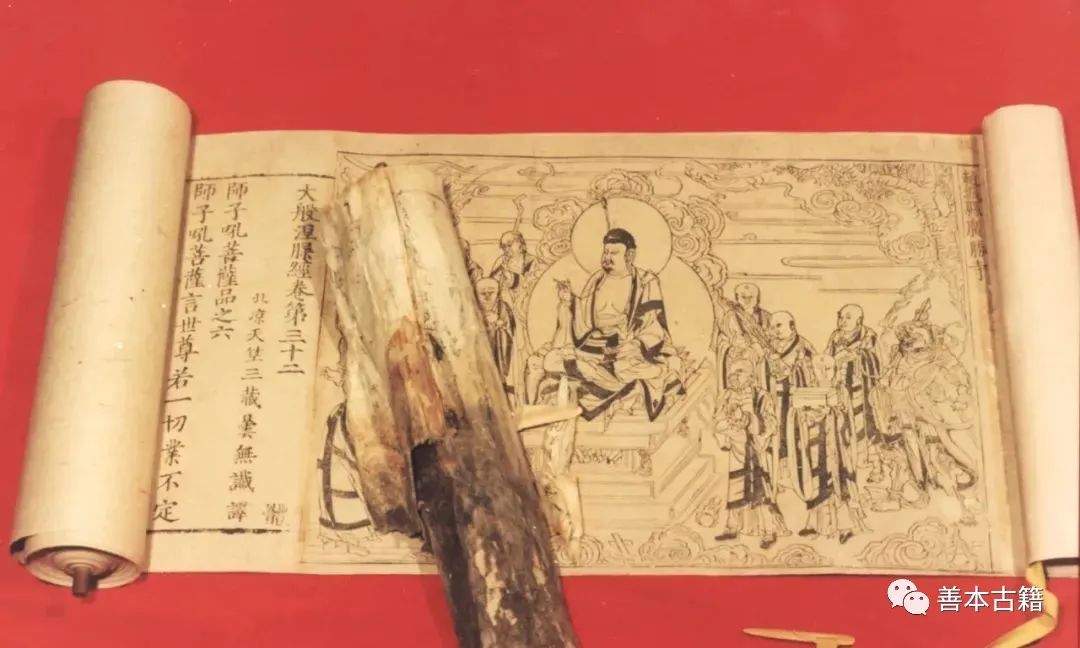 趙城縣廣勝寺
大般涅槃經卷第三十二
北涼天竺三藏曇無讖譯
師子吼菩薩品之六
師子吼菩薩言世尊若一切業不定
善本古籍